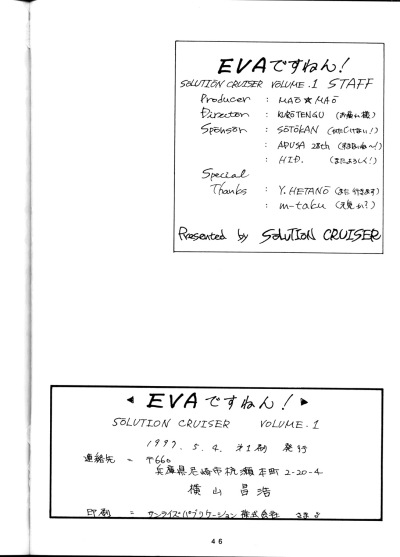 EVAですねん!
SOLUTION CRUISER VOLUME.1 STAFF
Producer : MAO★MAO
Director : KUROTENGU (お疲れ様)
Sponsor : SŌTŌKAN (かたじけない!)
: ADUSA 28th (まいどね〜!)
: H.I.D. (またよろしく!)
Special
Thanks : Y.HETANO (また行きます)
: m-taku (元気か?)
Presented by SOLUTION CRUISER
◀ EVAですねん! ▶
SOLUTION CRUISER VOLUME.1
1997.5.4. 第1刷 発行
連絡先 = 〒660
兵庫県尼崎市杭瀬本町2-20-4
横山昌浩
印刷 = サンライズパブリケーション株式会社 さま
46